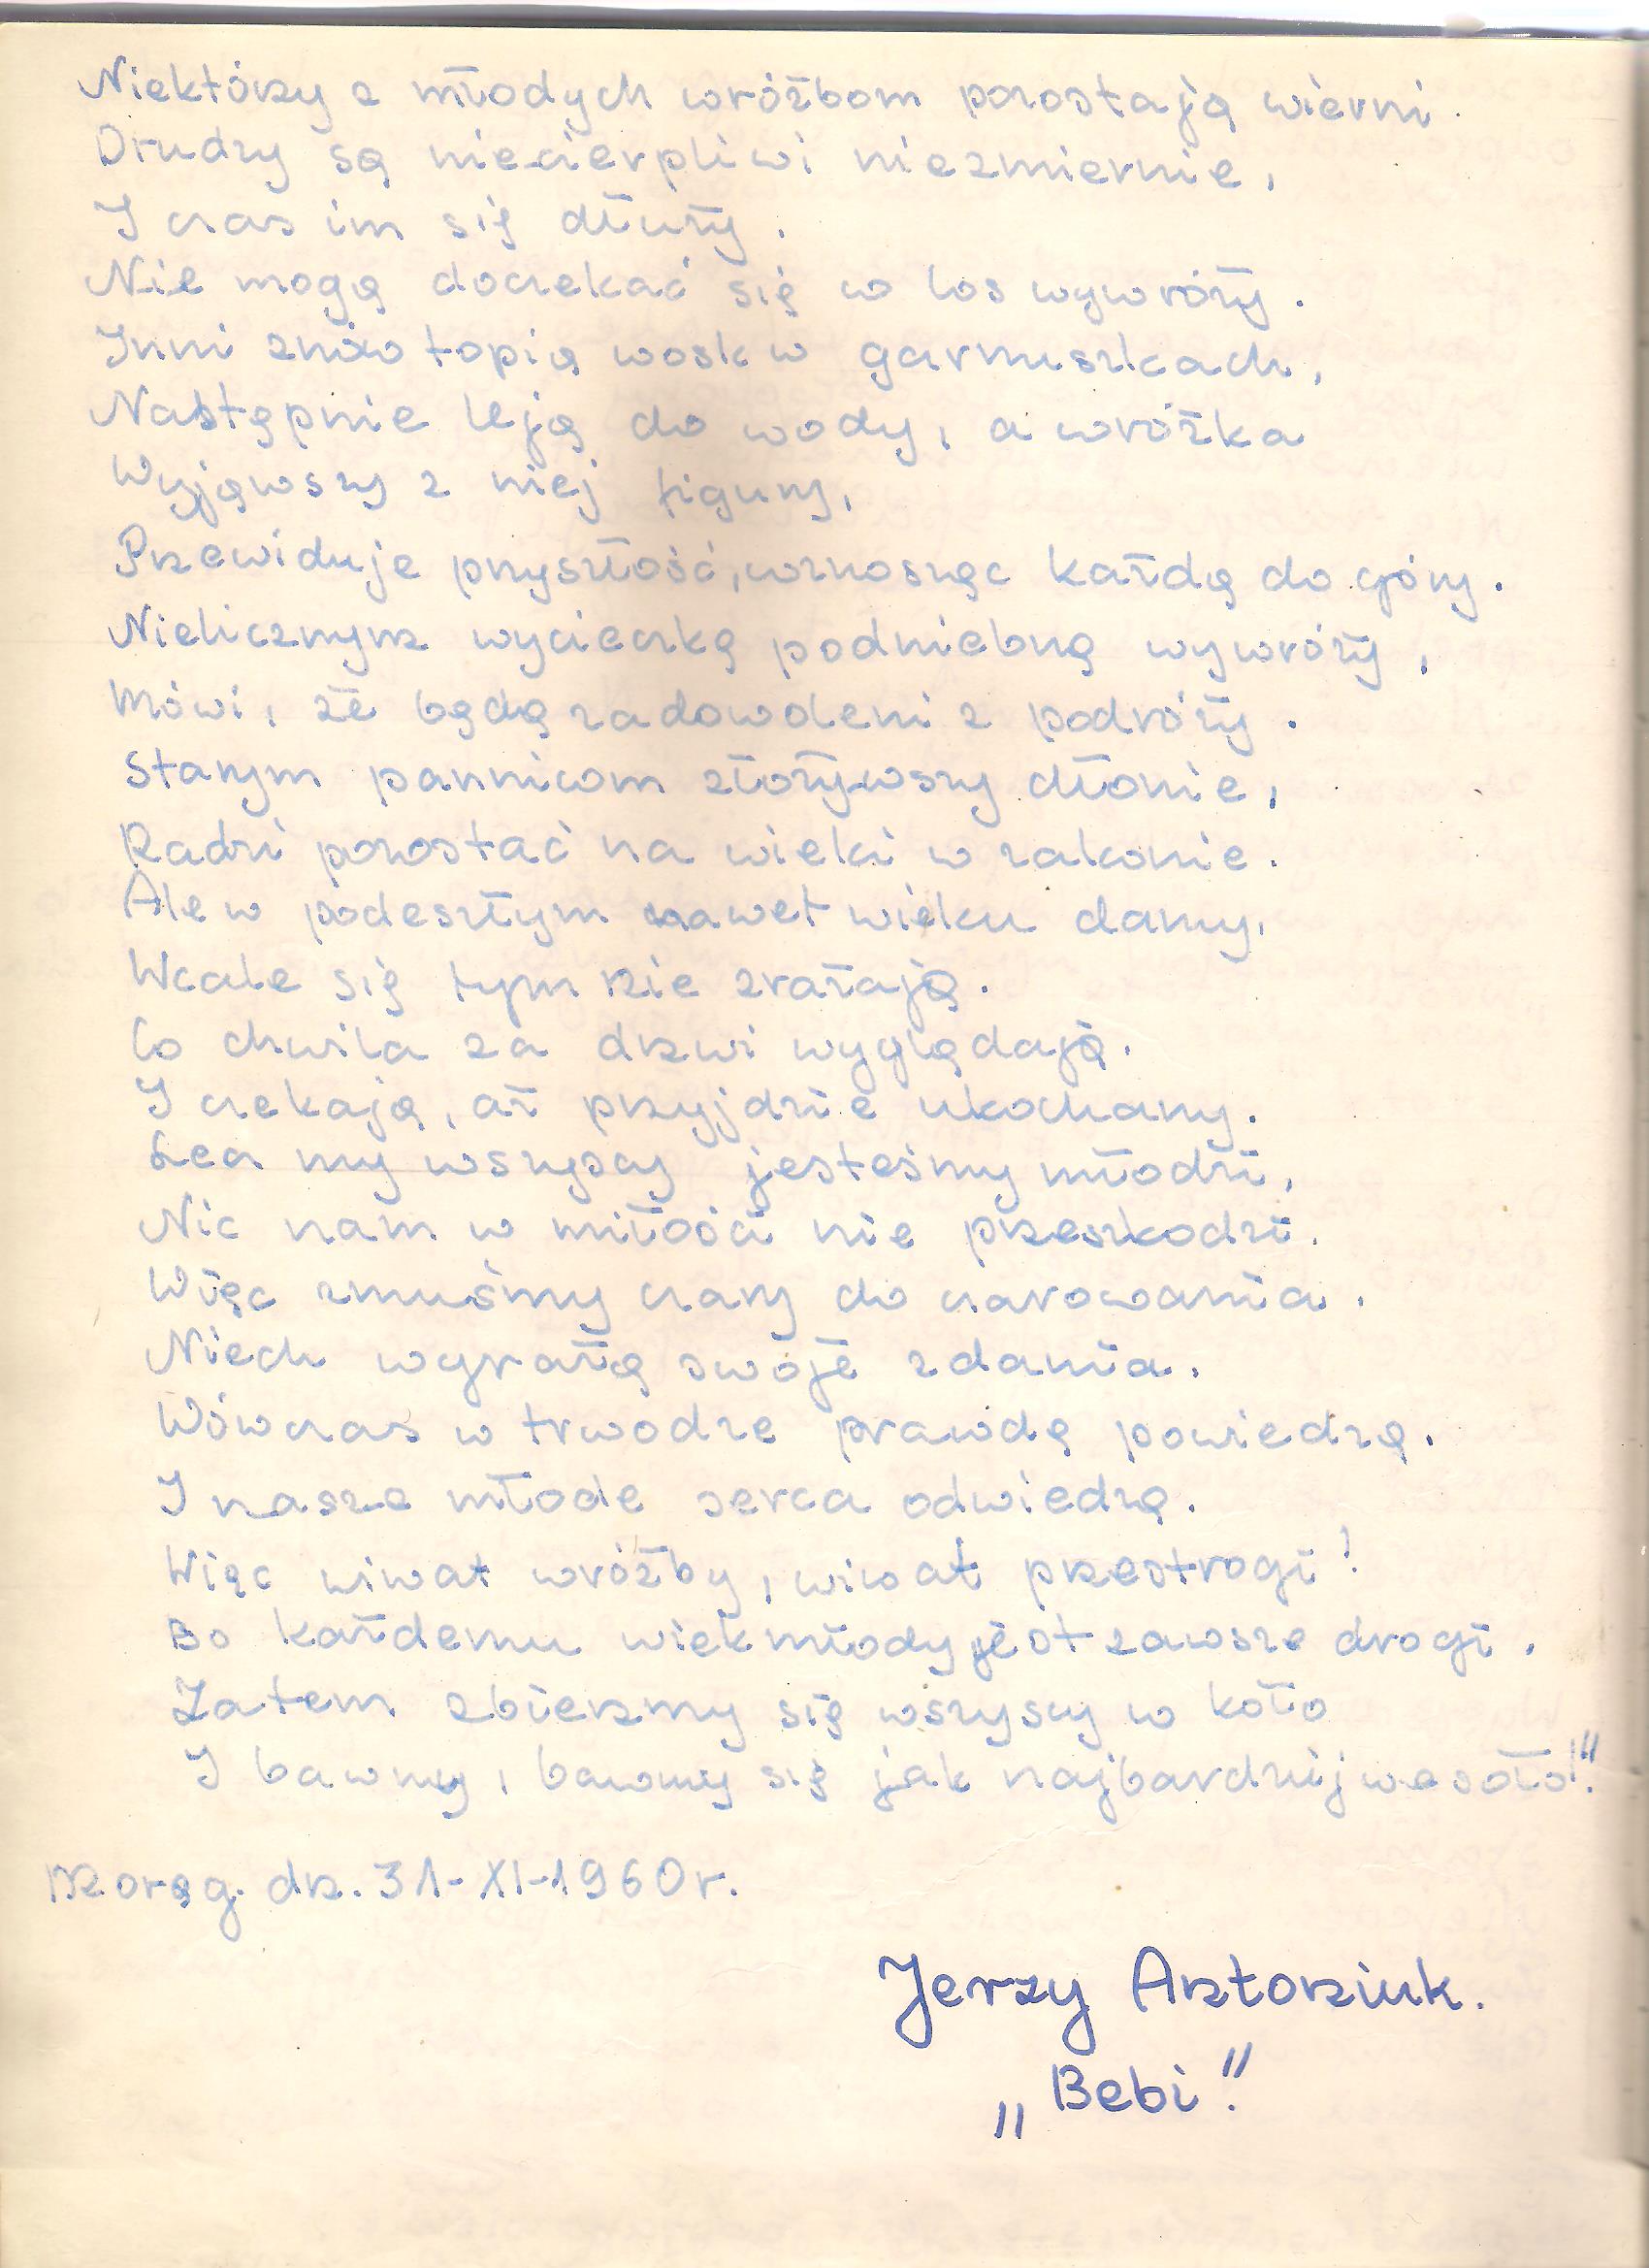 Niektórzy z młodych wróżbom pozostają wierni.
Drudzy są niecierpliwi niezmiernie,
I czas im się dłuży.
Nie mogą doczekać się co los wywróży.
Inni znów topią wosk w garnuszkach,
Następnie leją do wody, a wróżka
Wyjąwszy z niej figury,
Przewiduje przyszłość, wznosząc każdą do góry.
Nielicznym wycieczkę podniebną wywróży,
Mówi, że będą zadowoleni z podróży.
Starym pannicom złożywszy dłonie,
Radzi pozostać na wieki w zakonie.
Ale w podeszłym nawet wieku damy,
Wcale się tym nie zrażają.
Co chwila za drzwi wyglądają.
I czekają, aż przyjdzie ukochany.
Lecz my wszyscy jesteśmy młodzi,
Nic nam w miłości nie przeszkodzi.
Więc zmuśmy czary do czarowania.
Niech wyrażą swoje zdania.
Wówczas w trwodze prawdę powiedzą.
I nasze młode serca odwiedzą.
Więc wiwat wróżby, wiwat przestrogi!
Bo każdemu wiek młody jest zawsze drogi.
Zatem zbierzmy się wszyscy w koło
I bawmy, bawmy się jak najbardziej wesoło!"
dn. 31-XI-1960r.
Jerzy Antoniuk.
„Bebi."